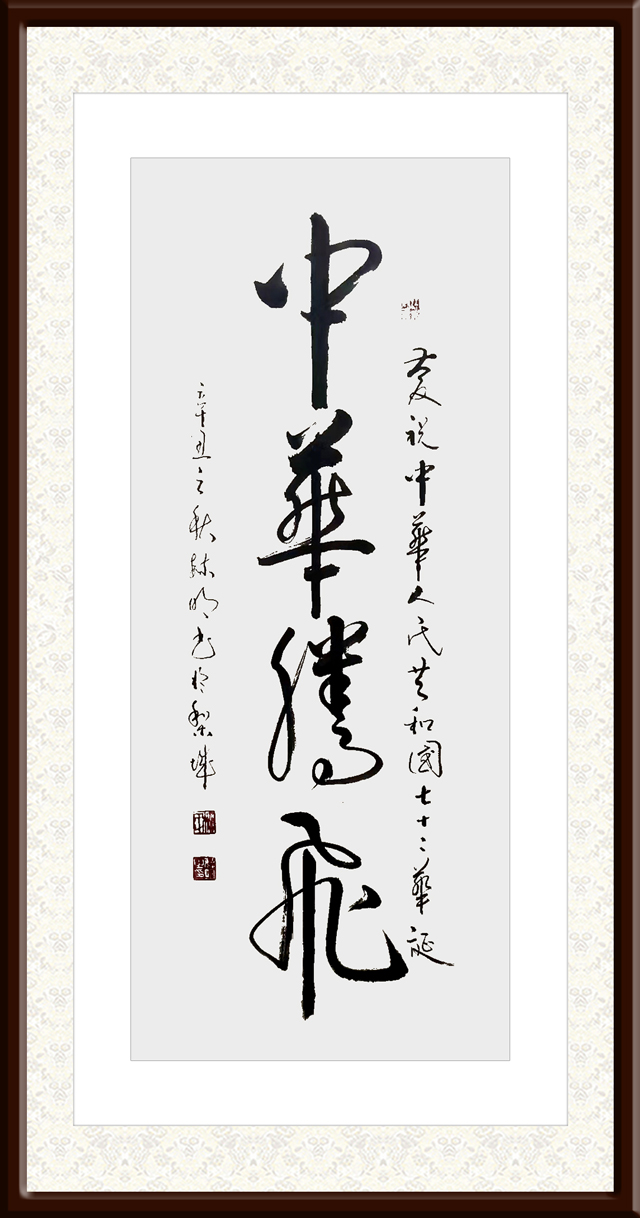 慶祝中華人民共和國七十二華誕
中華騰飛
辛丑之秋明书於梨城